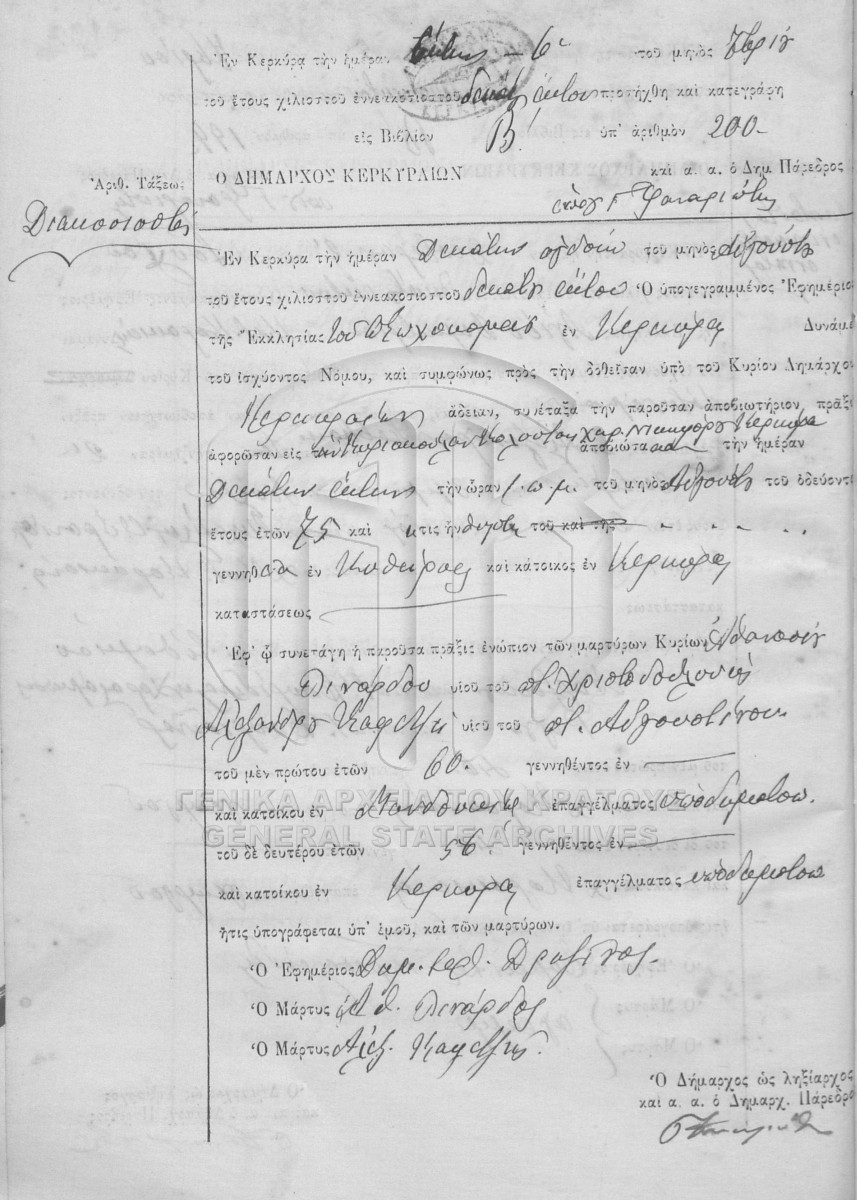 Ἐν Κερκύρᾳ τὴν ἡμέραν ἕκτην - 6ῃ τοῦ μηνὸς 7βρίου
τοῦ ἔτους χιλιοστοῦ ἐννεακοσιοστοῦ δεκάτου ἕκτου προσήχθη καὶ κατεγράφη
εἰς Βιβλίον Β! ὑπ' ἀριθμὸν 200-
Ἀριθ. Τάξεως
Ο ΔΗΜΑΡΧΟΣ ΚΕΡΚΥΡΑΙΩΝ καὶ α. α. ὁ Δημ Πάρεδρος
Διακοσιοστὸς
Ἐν Κερκύρα τὴν ἡμέραν Δεκάτην ὀγδόην τοῦ μηνὸς Αὐγούστου
τοῦ ἔτους χιλιοστοῦ ἐννεακοσιοστοῦ δεκάτου ἕκτου Ὁ ὑπογεγραμμένος Ἐφημέριος
τῆς Ἐκκλησίας τοῦ Πτωχοκομείου ἐν Κερκύρᾳ Δυνάμε
τοῦ ἰσχύοντος Νόμου, καὶ συμφώνως πρὸς τὴν δοθεῖσαν ὑπὸ τοῦ Κυρίου Δημάρχου
Κερκυραίων ἄδειαν, συνέταξα τὴν παροῦσαν ἀποβιωτήριον πρᾶξιν
ἀφορῶσαν εἰς τὴν Κυριακούλαν χήρ. Κερκύρᾳ
ἀποβιώσασαν τὴν ἡμέραν
Δεκάτην ἕκτην τὴν ὥραν 1. π. μ. τοῦ μηνὸς Αὐγούστου τοῦ ὁδεύοντος
ἔτους ἐτῶν 75 καὶ ἥτις ἦν τοῦ καὶ τῆς
γεννηθεῖσα ἐν Κυθήροις καὶ κάτοικος ἐν Κερκύρᾳ
καταστάσεως
Ἐφ' ᾧ συνετάγη ἡ παροῦσα πρᾶξις ἐνώπιον τῶν μαρτύρων Κυρίων Ἀθανασίου
Λινάρδου υἱοῦ τοῦ π. Χριστοδούλου καὶ
Ἀλεξάνδρου Καφετζῆ υἱοῦ τοῦ π. Αὐγουστίνου
τοῦ μὲν πρώτου ἐτῶν 60. γεννηθέντος ἐν
καὶ κατοίκου ἐν Μανδουκίῳ ἐπαγγέλματος ὑποδηματοπ.
τοῦ δὲ δευτέρου ἐτῶν 56 γεννηθέντος ἐν
καὶ κατοίκου ἐν Κερκύρᾳ ἐπαγγέλματος ὑποδηματοπ
ἥτις ὑπογράφεται ὑπ' ἐμοῦ, καὶ τῶν μαρτύρων.
Ὁ Ἐφημέριος Δημ. ἱερ.
Ὁ Μάρτυς Ἀθ. Λινάρδος
Ὁ Μάρτυς Ἀλεξ. Καφετζῆς.
Ὁ Δήμαρχος ὡς ληξίαρχος
καὶ α. α. ὁ Δημαρχ. Πάρεδρο
ΓΕΝΙΚΑ ΑΡΧΕΙΑ ΤΟΥ ΚΡΑΤΟΥΣ
GENERAL STATE ARCHIVES